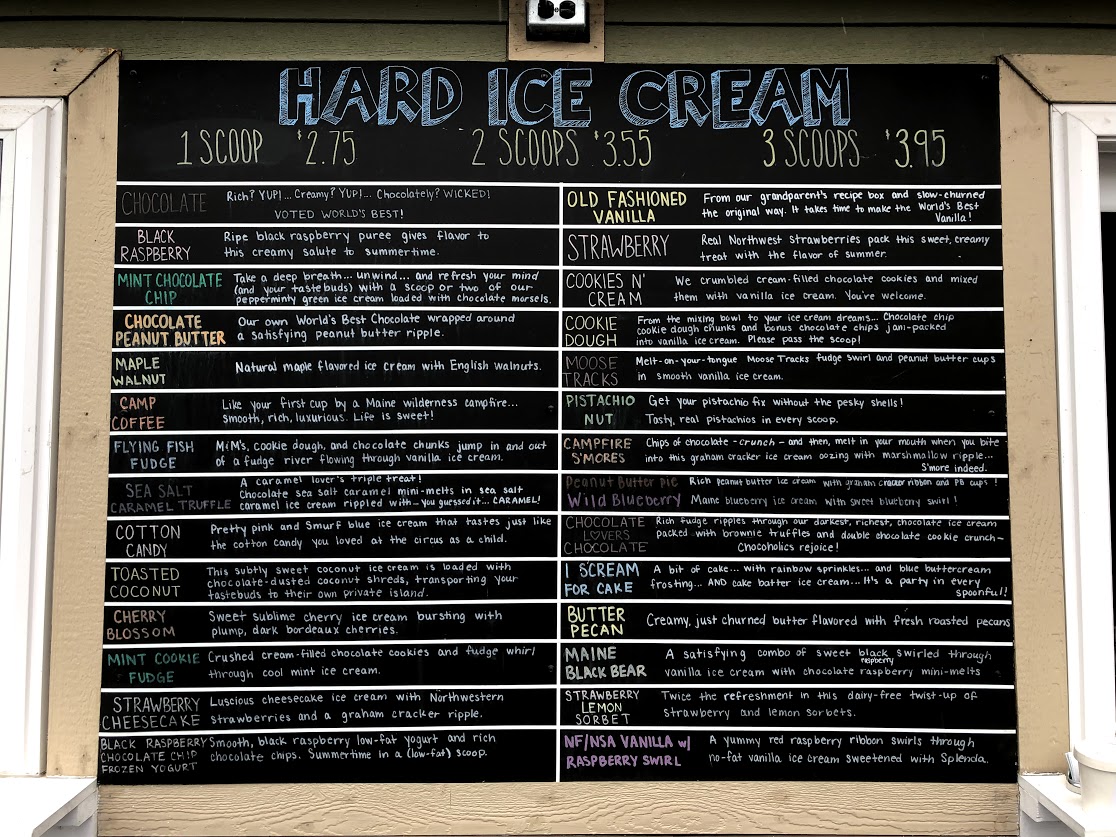 HARD ICE CREAM
1 SCOOP $2.75 2 SCOOPS $3.55 3 SCOOPS $3.95
CHOCOLATE
Rich? YUP!... Creamy? YUP!... Chocolately? WICKED!
VOTED WORLD'S BEST!
BLACK
RASPBERRY
Ripe black raspberry puree gives flavor to
this creamy salute to summertime.
MINT CHOCOLATE
CHIP
Take a deep breath... unwind... and refresh your mind
(and your tastebuds) with a scoop or two of our
pepperminty green ice cream loaded with chocolate morsels.
CHOCOLATE
PEANUT BUTTER
Our own World's Best Chocolate wrapped around
a satisfying peanut butter ripple.
MAPLE
WALNUT
Natural maple flavored ice cream with English walnuts.
CAMP
COFFEE
Like your first cup by a Maine wilderness campfire...
smooth, rich, luxurious. Life is sweet!
FLYING FISH
FUDGE
M&M's, cookie dough, and chocolate chunks jump in and out
of a fudge river flowing through vanilla ice cream.
SEA SALT
CARAMEL TRUFFLE
A caramel lover's triple treat!
Chocolate sea salt caramel mini-melts in sea salt
caramel ice cream rippled with - you guessed it... CARAMEL!
COTTON
CANDY
Pretty pink and Smurf blue ice cream that tastes just like
the cotton candy you loved at the circus as a child.
TOASTED
COCONUT
This subtly sweet coconut ice cream is loaded with
chocolate-dusted coconut shreds, transporting your
tastebuds to their own private island.
CHERRY
BLOSSOM
Sweet sublime cherry ice cream bursting with
plump, dark bordeaux cherries.
MINT COOKIE
FUDGE
Crushed cream-filled chocolate cookies and fudge whirl
through cool mint ice cream.
STRAWBERRY
CHEESECAKE
Luscious cheesecake ice cream with Northwestern
strawberries and a graham cracker ripple.
BLACK RASPBERRY
CHOCOLATE CHIP
FROZEN YOGURT
Smooth, black raspberry low-fat yogurt and rich
chocolate chips. Summertime in a (low-fat) scoop.
OLD FASHIONED
VANILLA
From our grandparent's recipe box and slow-churned
the original way. It takes time to make the World's Best
Vanilla!
STRAWBERRY
Real Northwest strawberries pack this sweet, creamy
treat with the flavor of summer.
COOKIES N'
CREAM
We crumbled cream-filled chocolate cookies and mixed
them with vanilla ice cream. You're welcome.
COOKIE
DOUGH
From the mixing bowl to your ice cream dreams... Chocolate chip
cookie dough chunks and bonus chocolate chips jam-packed
into vanilla ice cream. Please pass the scoop!
MOOSE
TRACKS
Melt-on-your-tongue Moose Tracks fudge swirl and peanut butter cups
in smooth vanilla ice cream.
PISTACHIO
NUT
Get your pistachio fix without the pesky shells!
Tasty, real pistachios in every scoop.
CAMPFIRE
S'MORES
Chips of chocolate - crunch - and then, melt in your mouth when you bite
into this graham cracker ice cream oozing with marshmallow ripple...
S'more indeed.
Peanut Butter Pie
Rich peanut butter ice cream with graham cracker ribbon and PB cups!
Wild Blueberry
Maine blueberry ice cream with sweet blueberry swirl!
CHOCOLATE
LOVERS
CHOCOLATE
Rich fudge ripples through our darkest, richest, chocolate ice cream
packed with brownie truffles and double chocolate cookie crunch-
Chocoholics rejoice!
I SCREAM
FOR CAKE
A bit of cake... with rainbow sprinkles... and blue buttercream
frosting... AND cake batter ice cream... It's a party in every
spoonful!
BUTTER
PECAN
Creamy, just churned butter flavored with fresh roasted pecans
MAINE
BLACK BEAR
A satisfying combo of sweet black raspberry swirled through
vanilla ice cream with chocolate raspberry mini-melts
STRAWBERRY
LEMON
SORBET
Twice the refreshment in this dairy-free twist-up of
strawberry and lemon sorbets.
NF/NSA VANILLA w/
RASPBERRY SWIRL
A yummy red raspberry ribbon swirls through
no-fat vanilla ice cream sweetened with Splenda.